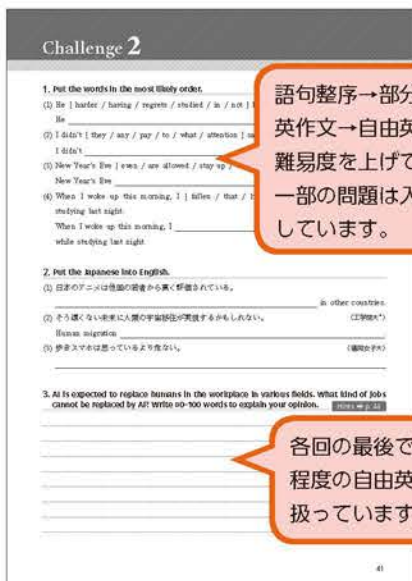 Challenge 2
1. Put the words in the most likely order.
(1) He [ harder / having / regrets / studied / in / not ]
He
(2) I didn't [ they / any / pay / to / what / attention ]
I didn't
(3) New Year's Eve [ even / are allowed / stay up /
New Year's Eve
(4) When I woke up this morning, I [ fallen / that /
studying last night.
When I woke up this morning, I
while studying last night.
2. Put the Japanese into English.
(1) 日本のアニメは他国の若者から高く評価されている。
in other countries.
(2) そう遠くない未来に人類の宇宙移住が実現するかもしれない。
Human migration
(3) 歩きスマホは思っているより危ない。
(福岡女子大)
3. AI is expected to replace humans in the workplace in various fields. What kind of jobs
cannot be replaced by AI? Write 80-100 words to explain your opinion.
語句整序→部分
英作文→自由英
難易度を上げて
一部の問題は入
しています。
各回の最後で
程度の自由英
扱っています
41